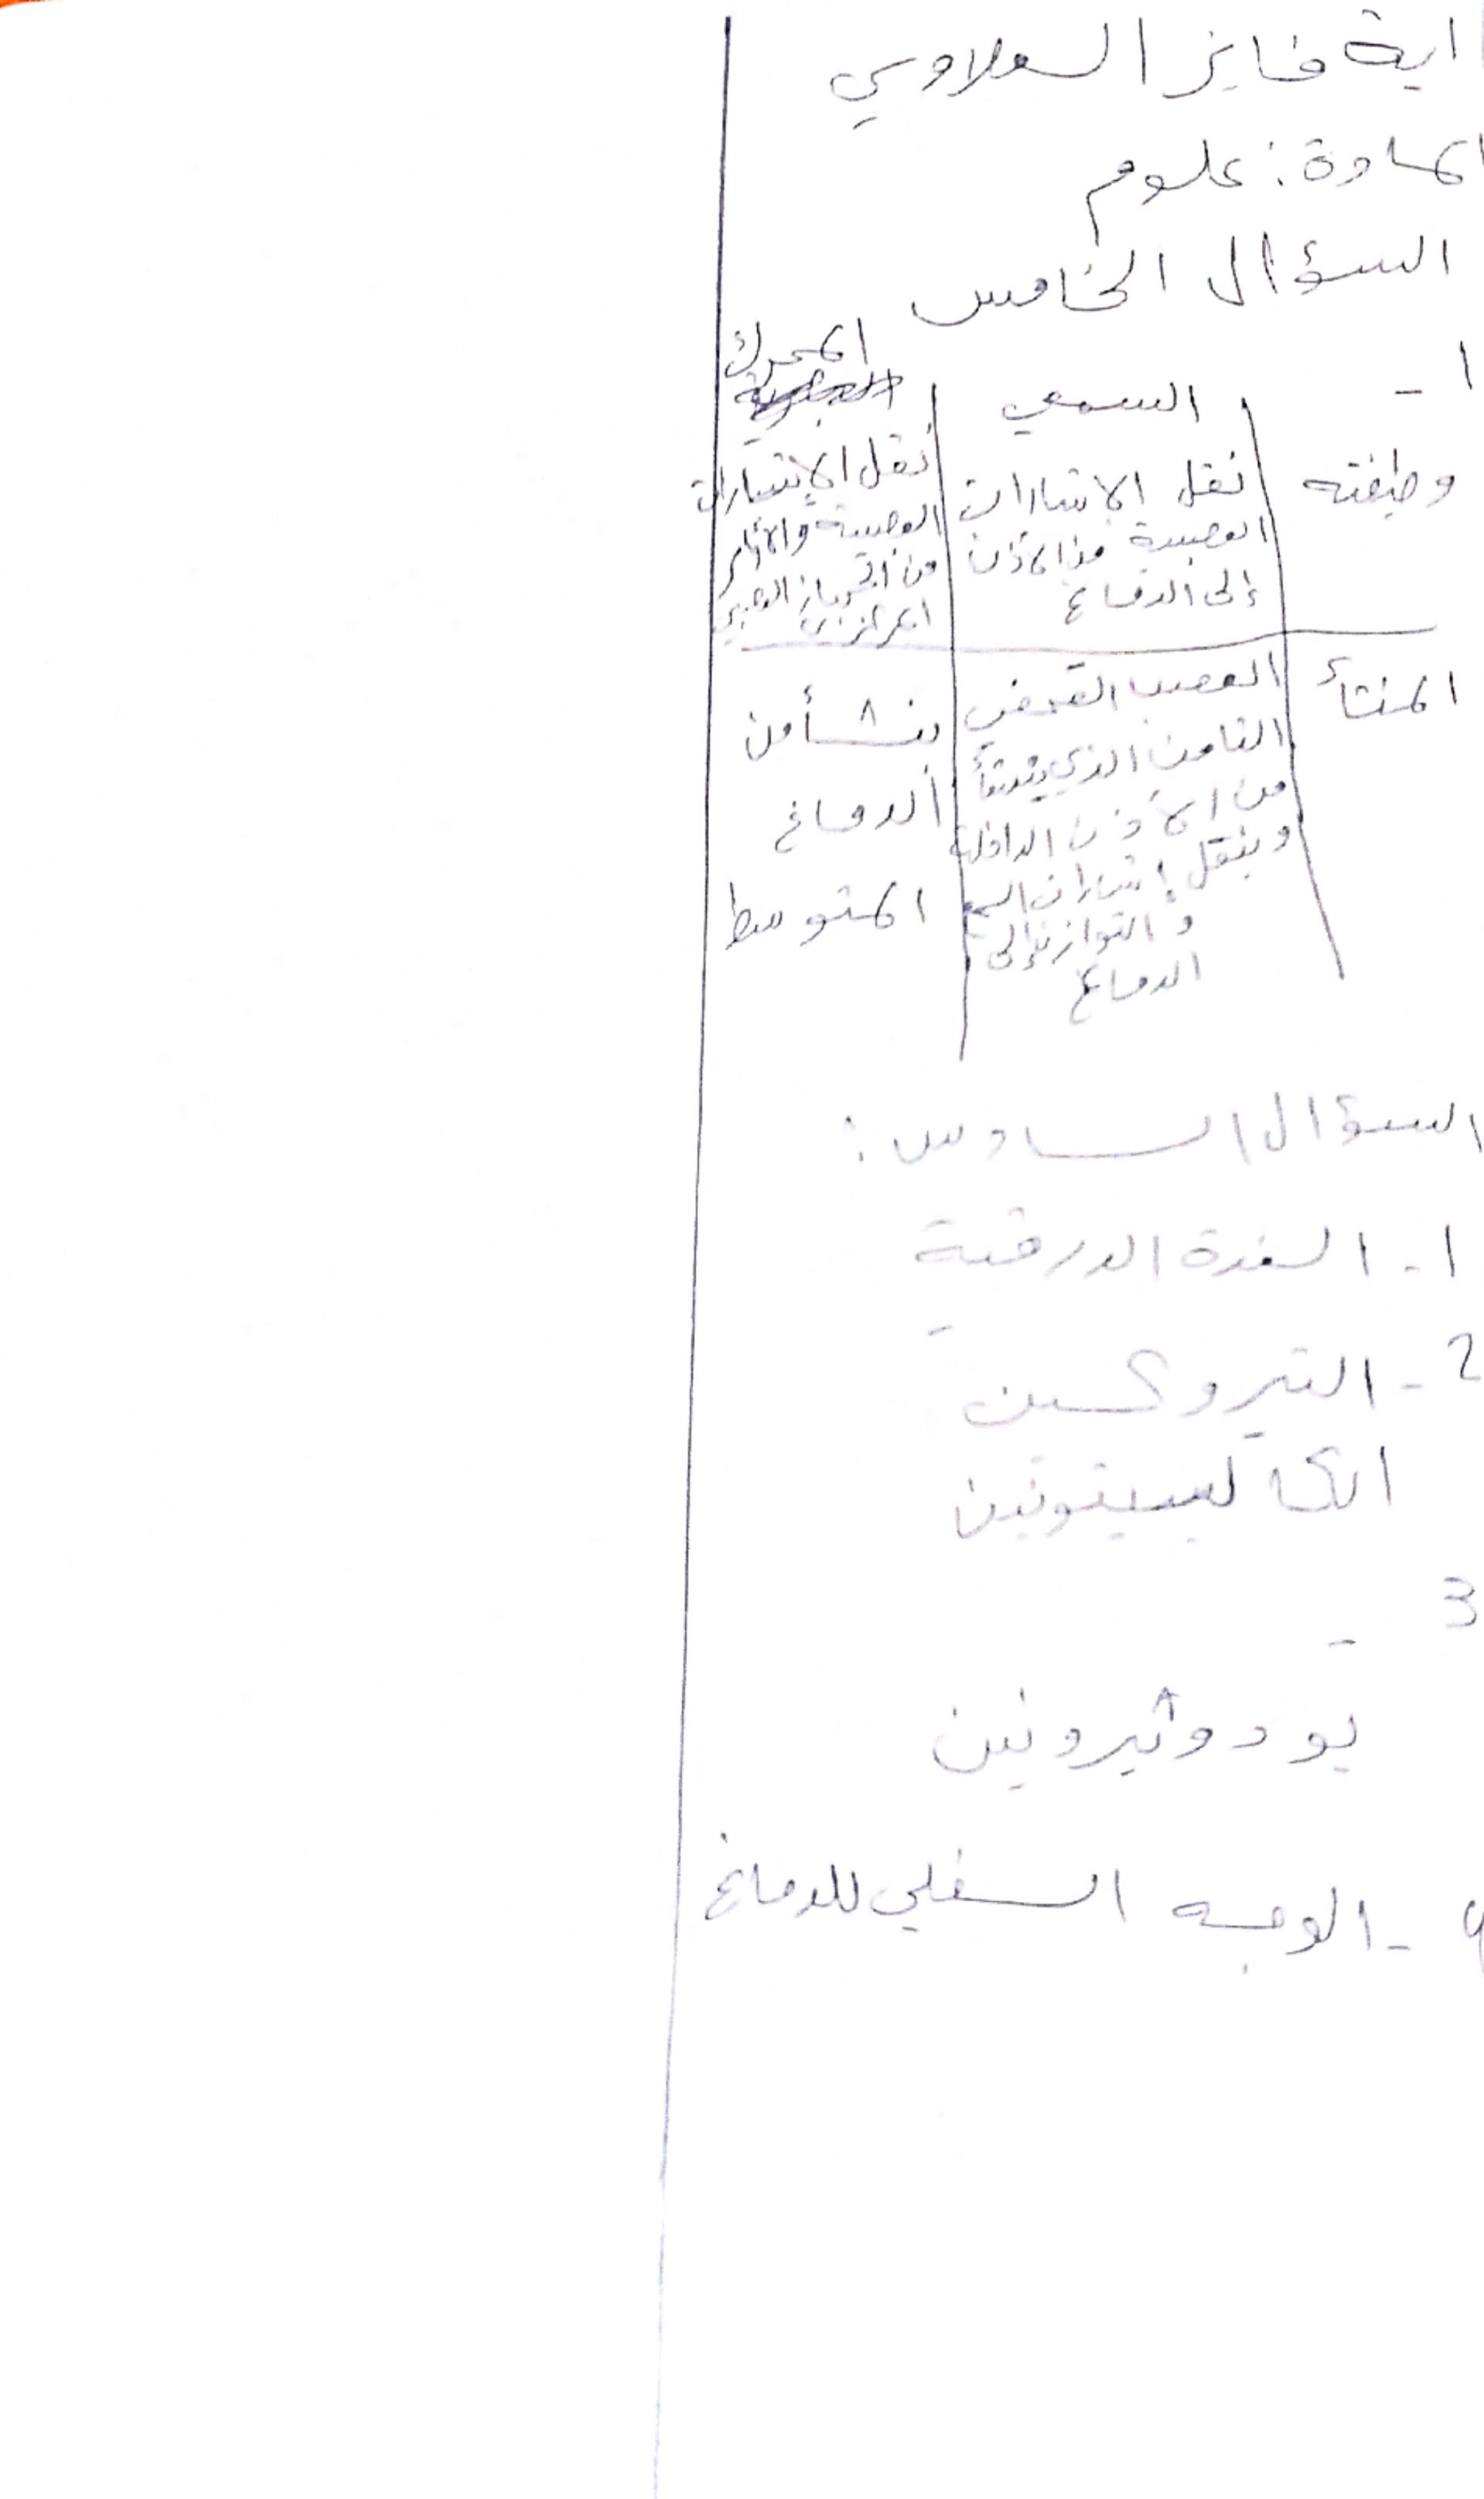 اية فايز السعلاوي
المادة: علوم
السؤال الخامس
1-
السمعي
المحرك
وظيفته
نقل الاشارات
العصبية من الأذن
إلى الدماغ
نقل الإشارات
العصبية والأوامر
من الجهاز العصبي
المركزي
المنشأ
العصب القحفي
الثامن الذي ينشأ
من الأذن الداخلية
وينقل إشارات السمع
و التوازن إلى
الدماغ
ينشأ من
الدماغ
المتوسط
السؤال السادس:
1- الغدة الدرقية
2- التيروكسين
الكالسيتونين
3-
يودوثيرونين
4- الوجه السفلي للدماغ